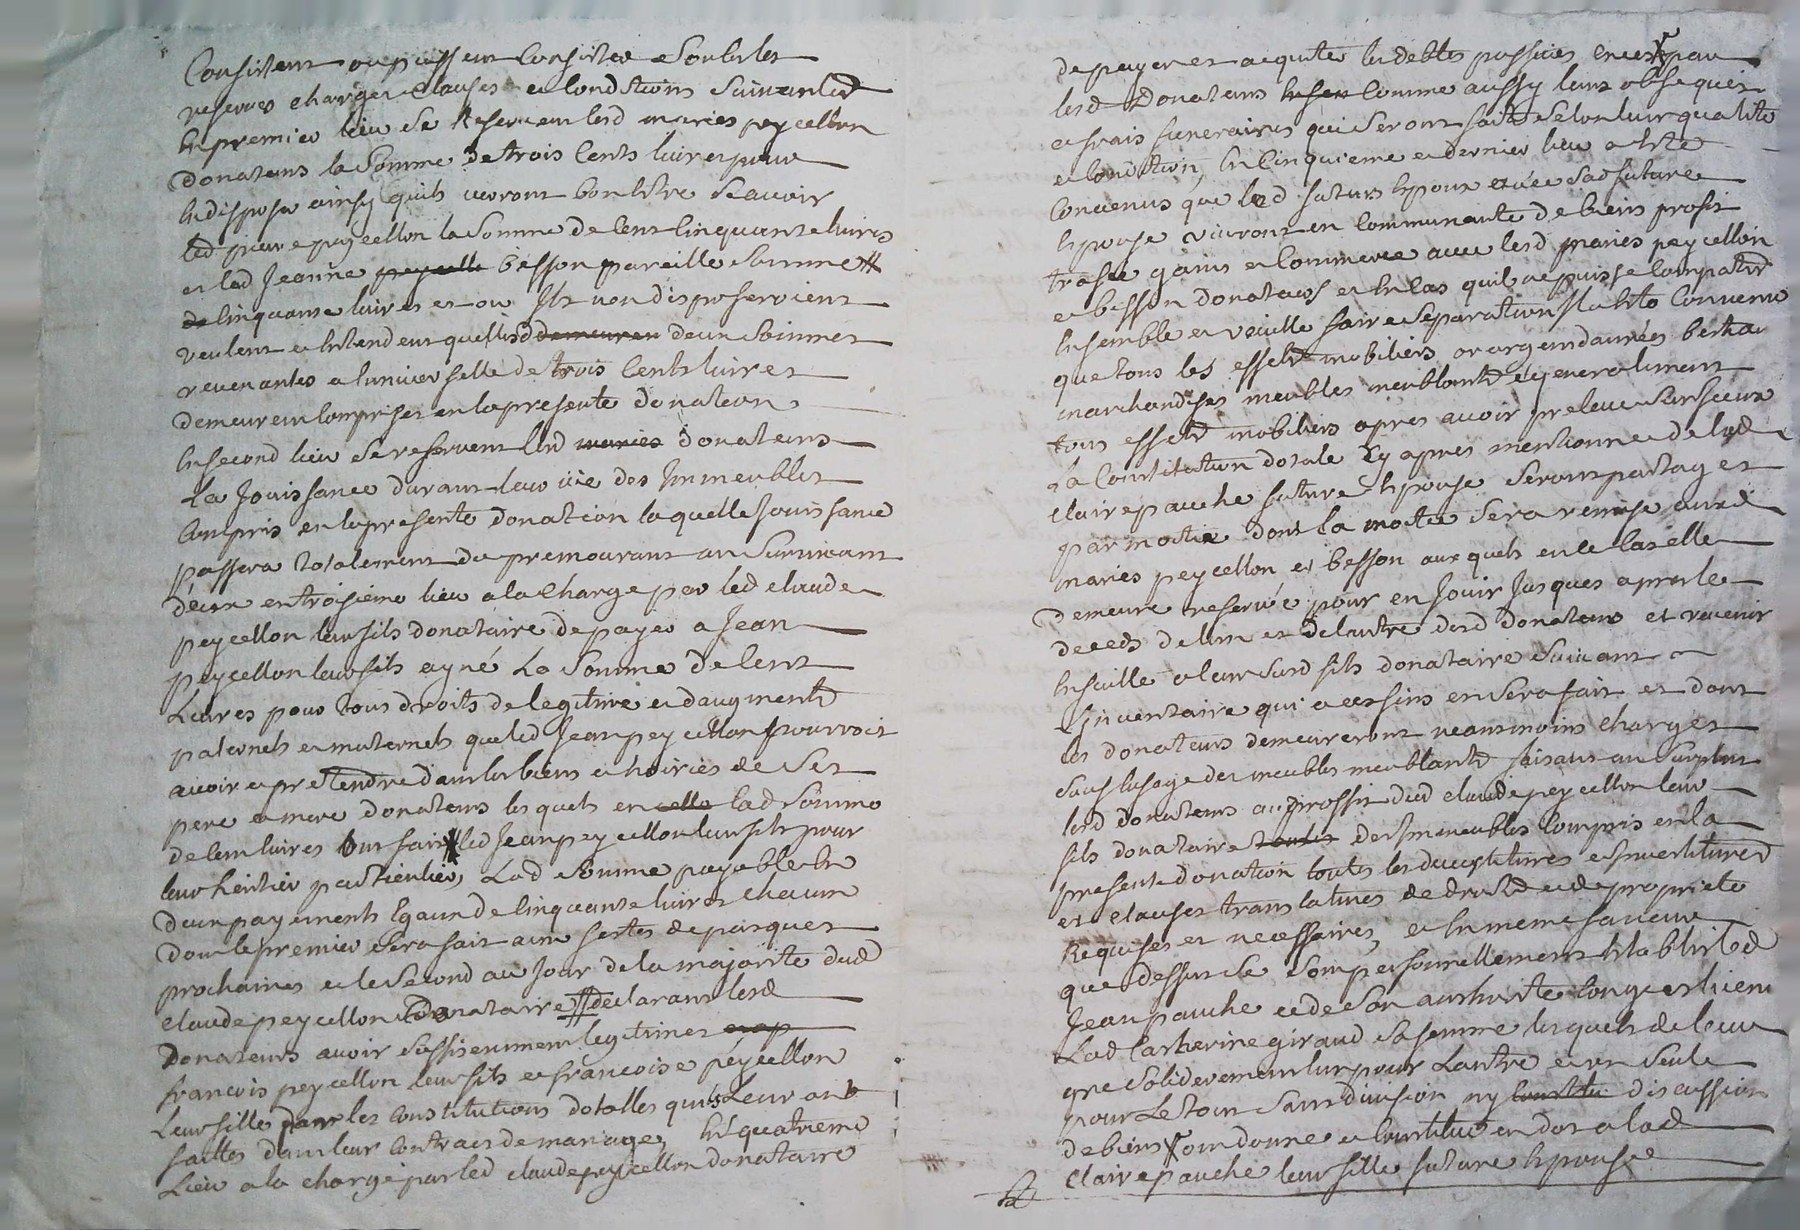 Consistent ou puissent Consister Soubs les
reserves charges Clauses et Conditions Suivantes
En premier lieu Se Reservent lesd maries peycellon
Donateurs la Somme de trois Cents livres pour
En disposer ainsy quils verront bon Estre Scavoir
led pierre peycellon la Somme de Cent Cinquante livres
et lad Jeanne peycello besson pareille Somme
de Cinquante livres et ou Ils non disposeroient
veulent et Entendent que lesd demeuren deux Sommes
revenantes a luniverselle de trois Cents livres
demeurent Comprises en la presente donation
En second lieu Se reservent lesd maries donateurs
La Jouissance durant leur vie des Immeubles
Compris en la presente donation laquelle Jouissance
passera totalement du premourant au Survivant
deux en troisieme lieu a la Charge par led claude
peycellon leur fils donataire de payer a Jean
peycellon leur fils ayné La Somme de Cent
Livres pour tous droits de legitime et daugment
paternels et maternels que led Jean peycellon pourroit
avoir et pretendre dans les biens et hoiries de Ses
pere et mere donateurs lesquels en cella lad Somme
de Cent livres Ont fait led Jean peycellon leur fils pour
leur heritier particulier, Lad Somme payable En
deux payements Egaux de Cinquante livres chacun
Dont le premier Sera fait aux festes de pasques
prochaines et le Second au Jour de la majorité dud
claude peycellon Donataire declarant lesd
Donateurs avoir Suffisemment legitimes
francois peycellon leur fils et francoise peycellon
Leur fille dans les Constitutions dotalles quils Leur ont
faittes dans leur Contrats de mariage, En quatrieme
Lieu a la charge par led claude peycellon donataire
de payer et acquiter les debtes passives Crees par
lesd Donateurs Comme aussy leurs obseques
et frais funeraires qui Seront faits Selon leur qualité
et Condition, En Cinquieme et dernier lieu a Eté
Convenus que led futurs Epoux avec Sad future
Epouse vivront en Communauté de biens profit
trafic gains et Commerce avec lesd maries peycellon
et besson donateurs et En Cas quils ne puisse Compatir
Ensemble et veuille faire Separation Il a Eté Convenu
que tous les effets mobiliers or argent danrées bestiau
marchandises meubles meublants et generalement
tous effets mobiliers apres avoir preleve Sur Iceux
La Constitution dotale Cy apres mentionnee de lad
claire pauche future Epouse Seront partages
par moitie dont la moitie Sera remise auxd
maries peycellon et besson aux quels en ce Cas elle
demeure reservée pour en Jouir Jusques apres le
deceds de lun et de lautre desd Donateurs et revenir
Ensuitte a leur Susd fils donataire Suivant
Linventaire qui a ces fins en Sera fait et dont
les donateurs demeureront neansmoins charges
Sauf lusage des meubles meublants faisant au Surplus
lesd donateurs au proffit dud claude peycellon leur
fils donataire toutes des Immeubles Compris en la
presente donation toutes les devestitures et Investitures
et clauses translatives de droits et de proprieté
Requises et necessaires, et En meme faveur
que dessus Se Sont personnellement Etablis led
Jean pauche et de Son authorite Conge et licence
Lad Catherine giraud Sa femme lesquels de leur
gre Soliderement lun pour Lautre et un Seul
pour Le tout Sans division ny Constitu discussion
de biens ont donne et Constitue en dot a lad
Claire pauche leur fille future Epouse